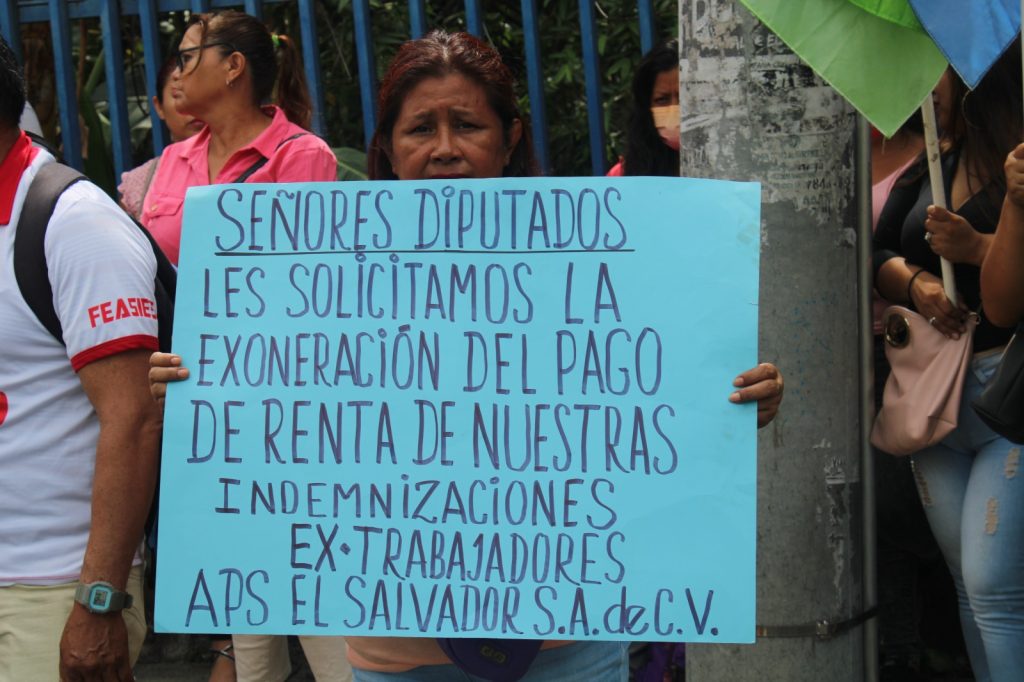 SEÑORES DIPUTADOS
LES SOLICITAMOS LA
EXONERACIÓN DEL PAGO
DE RENTA DE NUESTRAS
INDEMNIZACIONES
EX·TRABAJADORES
APS EL SALVADOR S.A. de C.V.
FEASIES